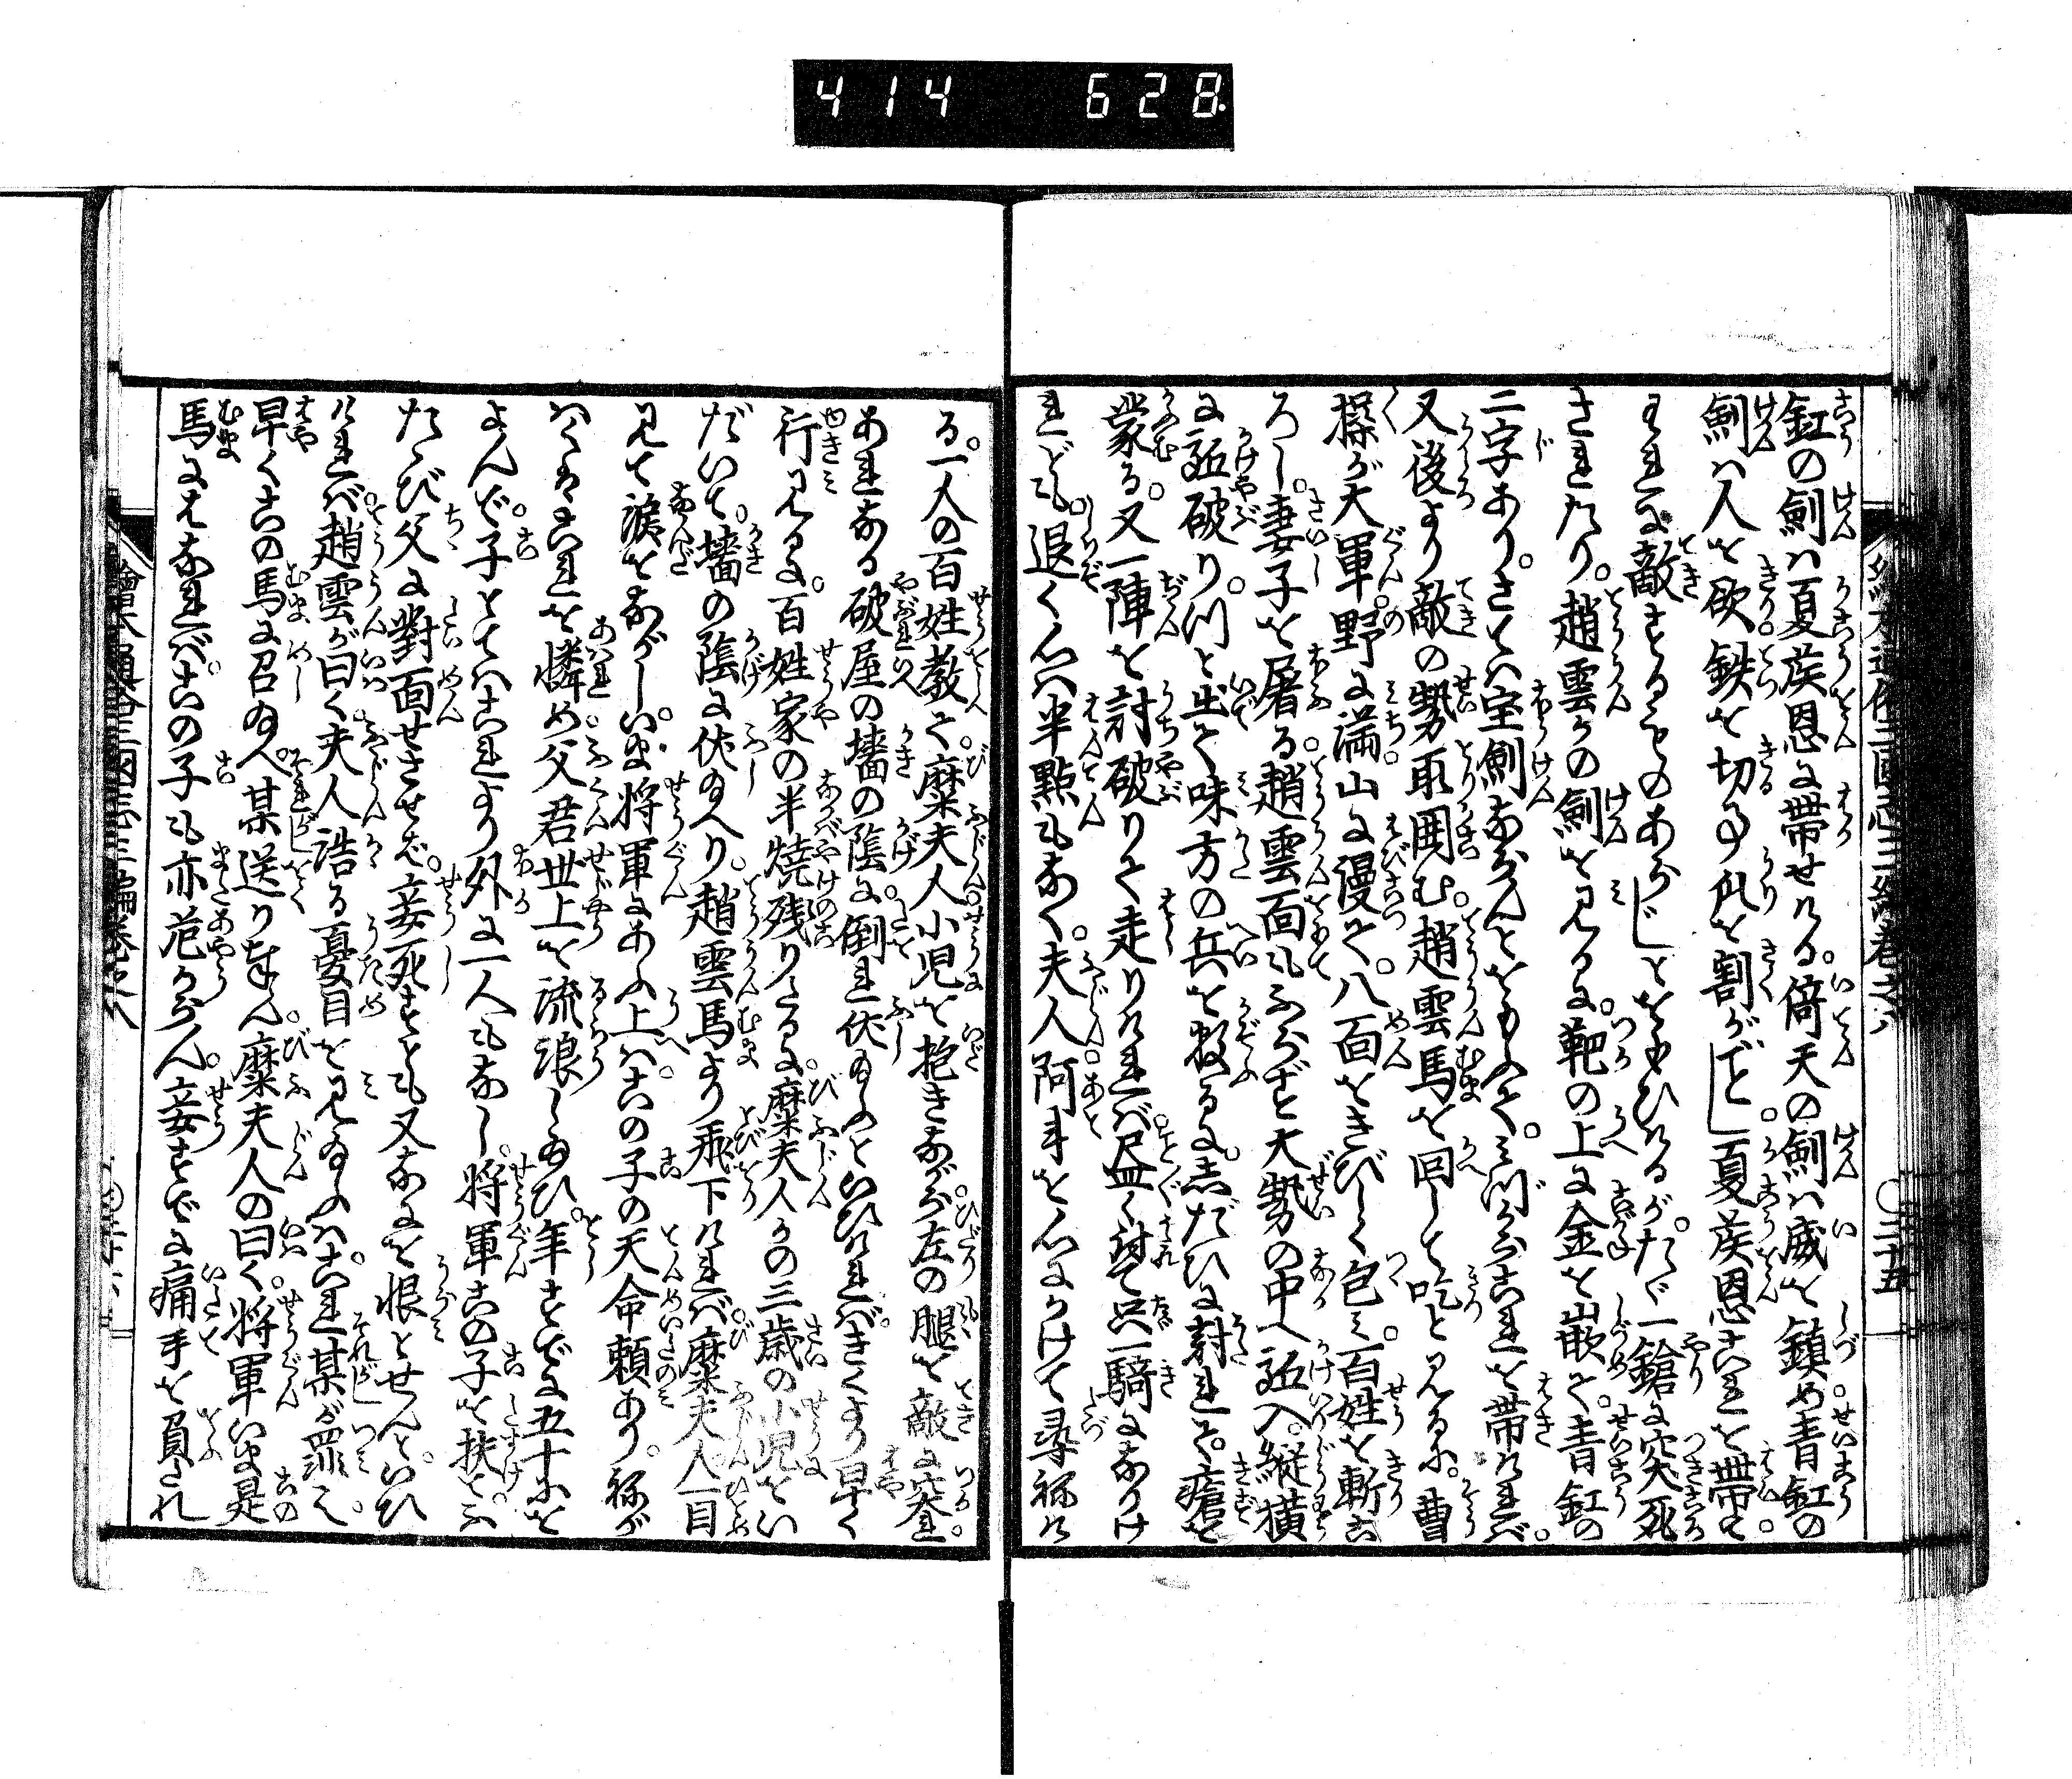 414 628
釭の劍は夏侯恩に帶せける。倚天の劍は威を鎮め青釭の
劍は人を欲鉄を切る事瓜を割がごとし夏侯恩これを帶て
われに敵するものあらじとをもひけるが。たゞ一鎗に突死
されたり。趙雲かの劍を見るに。靶の上に金を嵌て。青釭の
二字あり。さては宝劍ならんとをもふて。みづからこれを帶ければ。
又後より敵の勢取囲む。趙雲馬を回して屹と見るに。曹
操が大軍。野に満山に漫て。八面をきびしく包み。百姓を斬こ
ろし。妻子を屠る。趙雲面もふらず大勢の中へ馳入。縦横
に馳破り。つと出て味方の兵を数るに。志だひに討れて。瘡を
蒙る。又一陣を討破りて走りければ。尽く討て只一騎になりけ
れども。退く心半點もなく。夫人阿斗を心にかけて尋ねけ
る。一人の百姓教て。糜夫人小児を抱きながら。左の腿を敵に突れ。
あれなる破屋の墻の陰に。倒れ伏給ふといひければ。きくより早く
行見るに。百姓家の半焼残りたるに。糜夫人かの三歳の小児をい
だいて。墻の陰に伏給へり。趙雲馬より飛下ければ。糜夫人一目
見て涙をながし。いま将軍にあふ上は。この子の天命頼あり。ねが
はくはこれを憐め。父君世上を流浪し給ひ。年すでに五十にを
よんで。子とてはこれより外に一人もなし。将軍この子を扶てふ
たゝび父に對面せさせば。妾死すとも又なにを恨とせんと。いひ
ければ。趙雲が曰く夫人誥る憂目を見給ふは。これ某が罪也。
早くこの馬に召給へ。某送り奉ん。糜夫人の曰く。将軍いま是
馬にはなれば。この子も亦危からん。妾すでに痛手を負たれ